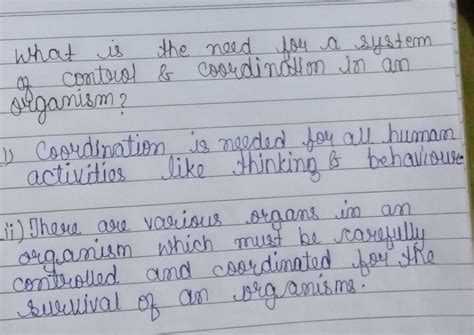 What is the need for a system
of control & coordination in an
organism?
i) Coordination is needed for all human
activities like thinking & behaviour
ii) There are various organs in an
organism which must be carefully
controlled and coordinated for the
survival of an organisms.